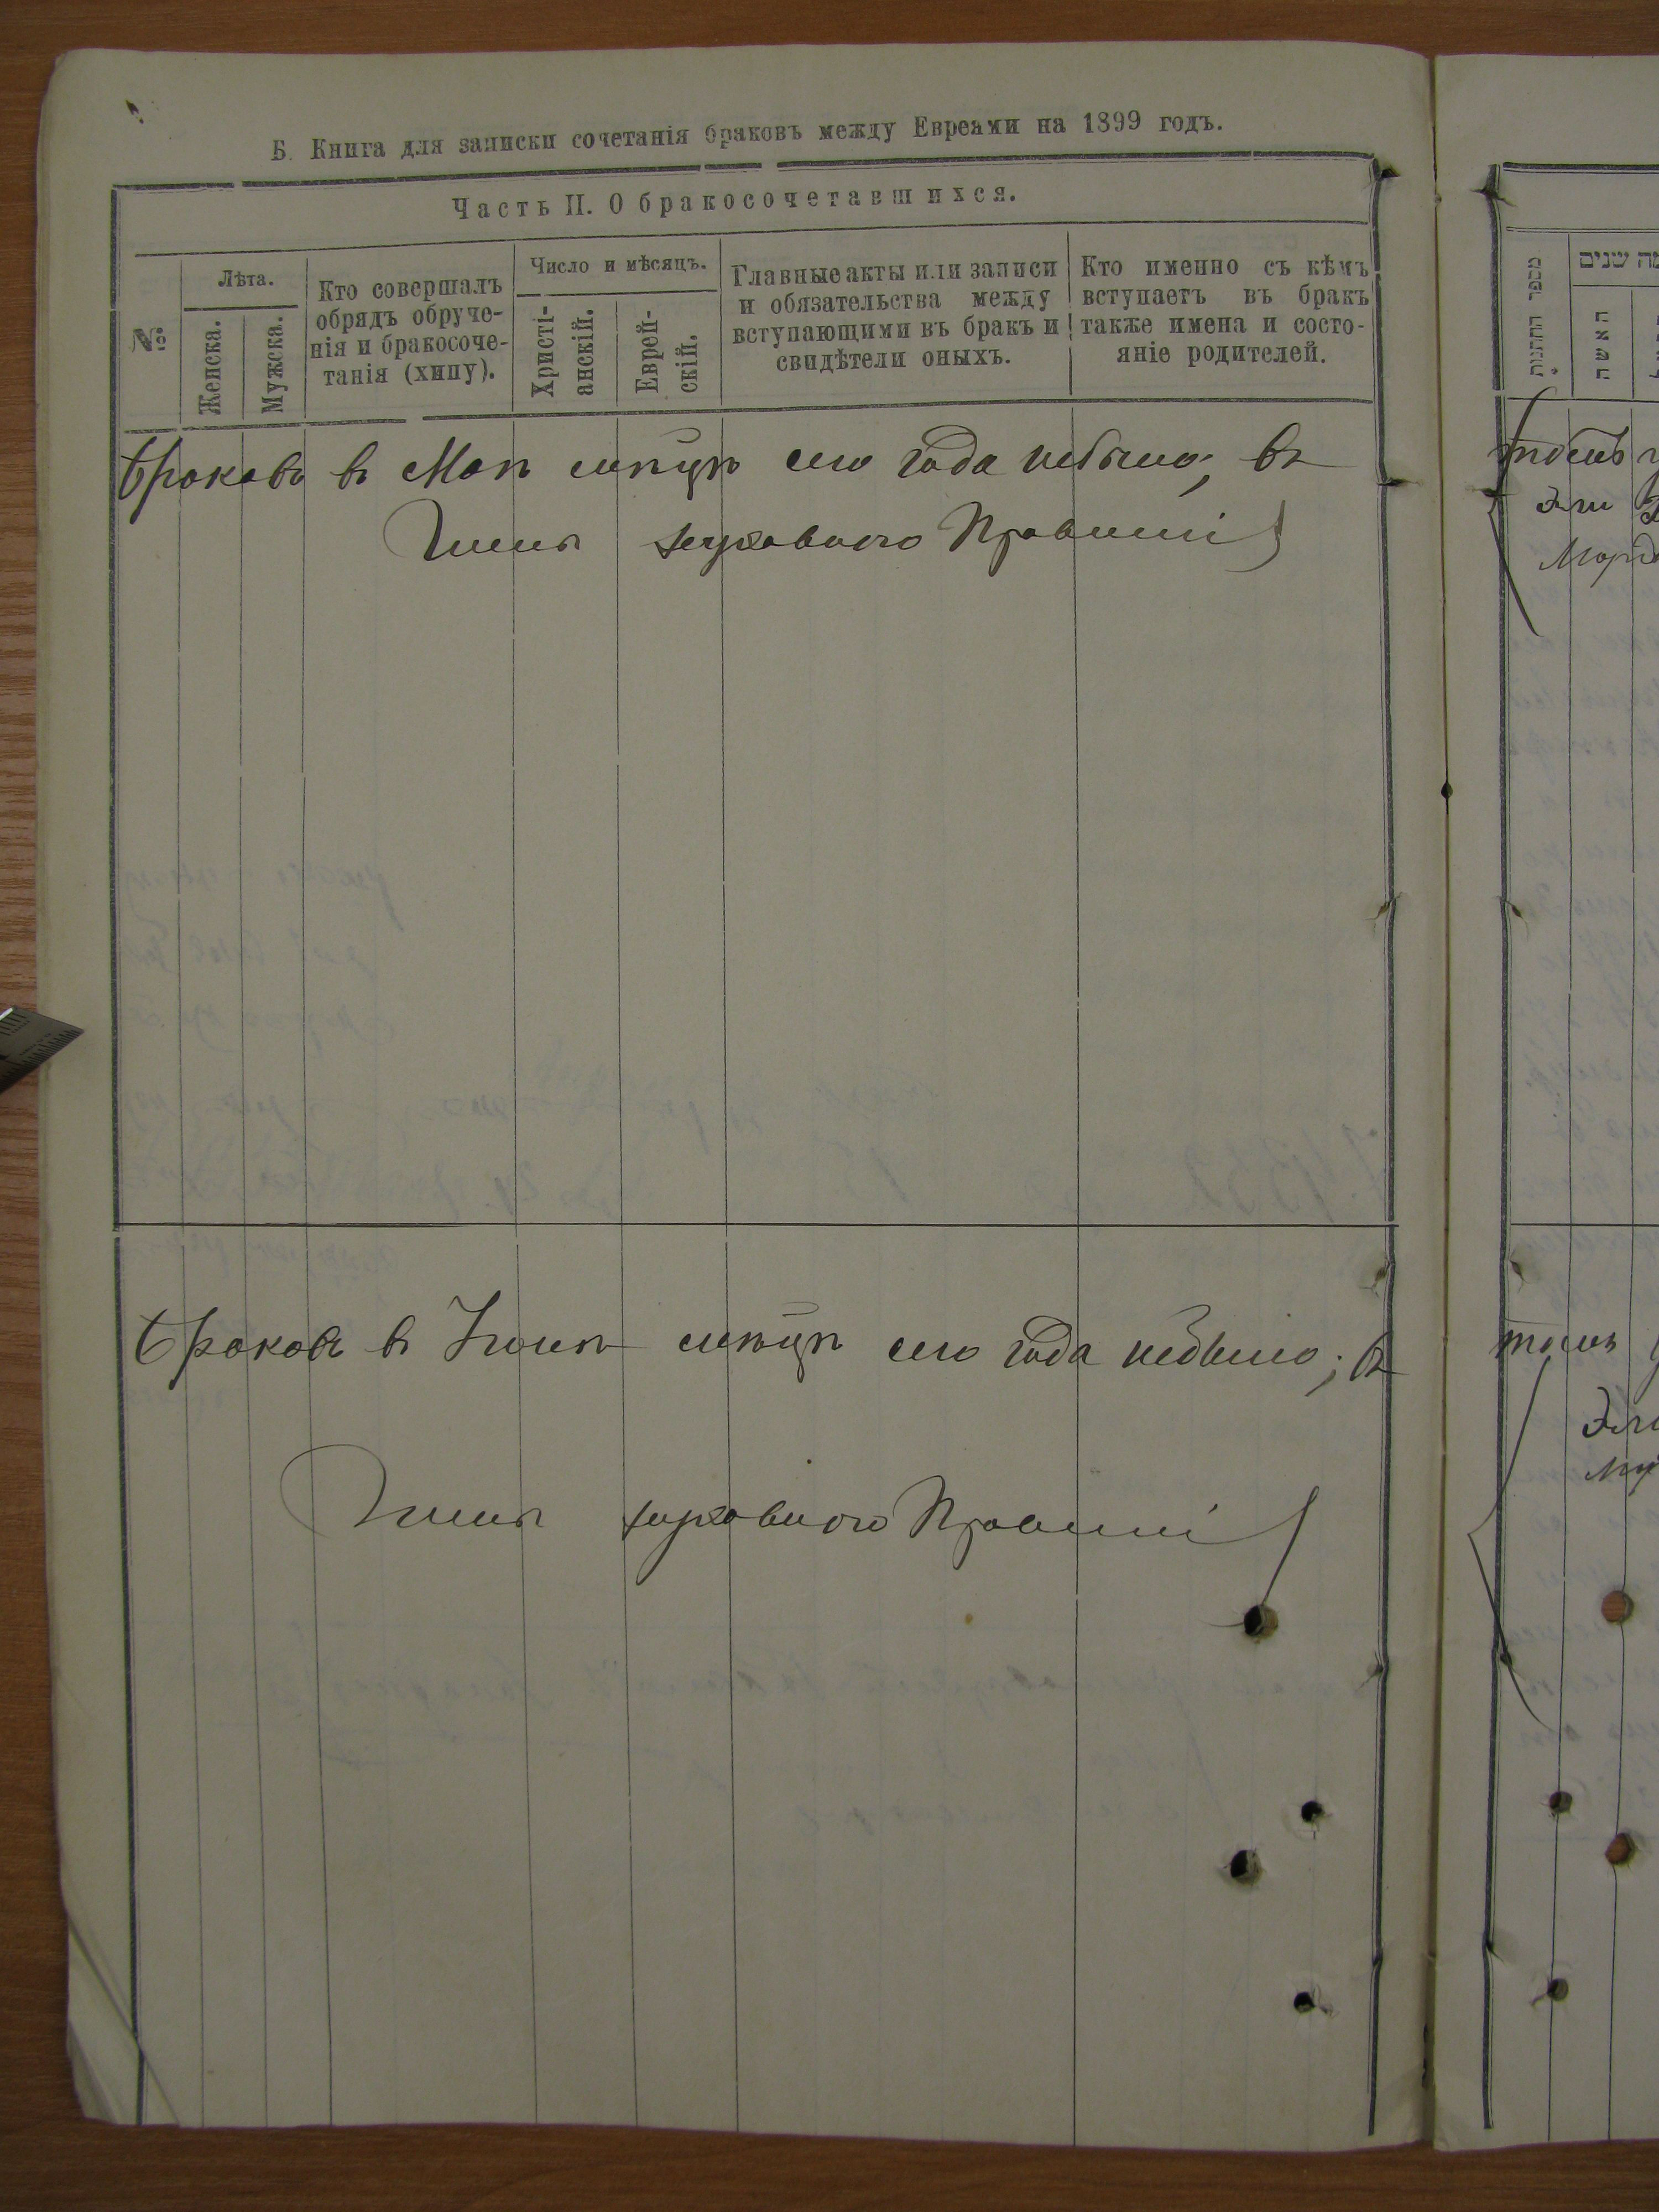 Б. Книга для записки сочетанія браковъ между Евреами на 1899 годъ.
Часть II. О бракосочетавшихся.
№
Лѣта.
Женска.
Мужска.
Кто совершалъ
обрядъ обруче-
нія и бракосоче-
танія (хипу).
Число и мѣсяцъ.
Христі-
анскій.
Еврей-
скій.
Главные акты или записи
и обязательства между
вступающими въ бракъ и
свидѣтели оныхъ.
Кто именно съ кѣмъ
вступаетъ въ бракъ
также имена и состо-
яніе родителей.
Браковъ въ Маѣ мѣсяцѣ сего года небыло; въ
Члены духовного Правленія
Браковъ въ Іюнѣ мѣсяцѣ сего года небыло; въ
Члены духовного Правленія
מספר החתונות
שנים
האשה
томъ
томъ